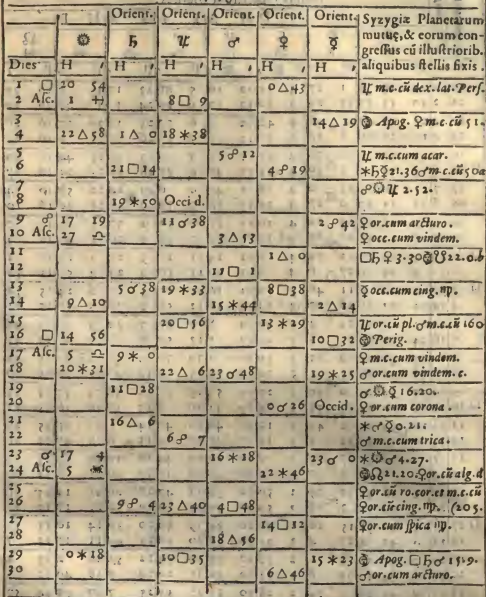 Orient. Orient. Orient. Orient. Orient. Syzygiæ Planetarum
☉ ♄ ♃ ♂ ♀ ☿ mutuę, & eorum con-
gressus cū illustriorib.
Dies H , H , H , H , H , H , aliquibus stellis fixis .
1 □ 20 54 0△43 ♃ m.c.cū dex. lat. Pers.
2 Asc. 1 8□ 9
3 14△19 Apog. ♀ m.c. cū 51.
4 22△58 1△ 0 18✶38
5 5☍12 ♃ m.c.cum acar.
6 21□14 4☍19 ✶♄☿21.36♂m.c.cū50a
7 ☍☉♃ 2.52.
8 19✶50 Occid.
9 ☍ 17 19 11☌38 2☍42 ♀or.cum arcturo.
10 Asc. 27 ♎ 3△53 ♀occ.cum vindem.
11 1△ 0 □♄♀3.30 ☋22.0.b
12 11□ 1
13 5☌38 19✶33 8□38 ☿occ.cum cing. ♍.
14 9△10 15✶44 2△14
15 20□56 13✶29 ♃or.cū pl.♂m.c.cū 160
16 □ 14 56 10□32 Perig.
17 Asc. 5 ♎ 9✶ 0 ♀m.c.cum vindem.
18 20✶31 22△ 6 23☌48 19✶25 ♂or.cum vindem. c.
19 11□28 ☌☉☿16.20.
20 0☌26 Occid. ♀or.cum corona .
21 16△ 6 ✶♂♀0.21.
22 6☍ 7 ♂m.c.cum trica.
23 ☌ 17 4 16✶18 23☌ 0 ✶☉♂4.27.
24 Asc. 5 ♒ 22✶46 ☊21.20.♀or.cū alg.d
25 ♀or.cū ro.cor.et m.c.cū
26 9☍ 4 23△40 4□48 ♀or.cū cing. ♍. (205.
27 14□12 ♀or.cum spica ♍.
28 18△56
29 0✶18 10□35 15✶23 Apog. □♄♂15.9.
30 6△46 ♂or.cum arcturo.